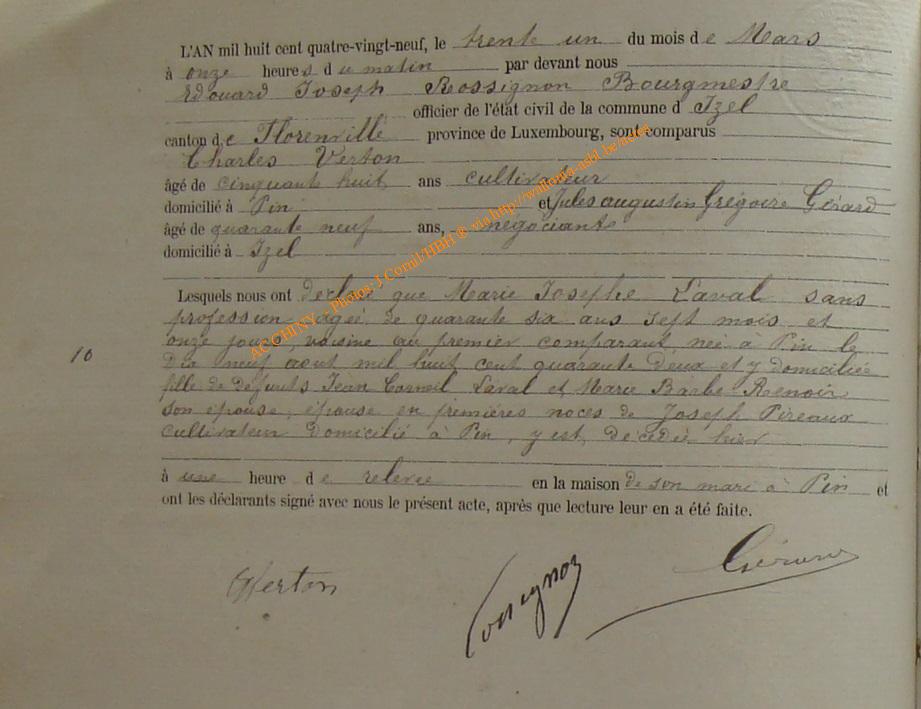 L'AN mil huit cent quatre-vingt-neuf, le trente un du mois de Mars
à onze heures du matin par devant nous
Edouard Joseph Rossignon Bourgmestre
officier de l'état civil de la commune d Izel
canton de Florenville province de Luxembourg, sont comparus
Charles Verton
âgé de cinquante huit ans cultivateur
domicilié à Pin et Jules augustin Grégoire Gérard
âgé de quarante neuf ans, négociant
domicilié à Izel
Lesquels nous ont déclaré que Marie Josephe Laval sans
profession agée de quarante six ans sept mois et
10
onze jours, voisine au premier comparant née à Pin le
dix neuf aout mil huit cent quarante deux et y domiciliée
fille de défunts Jean Corneil Laval et Marie Barbe Renoir
son épouse, épouse en premières noces de Joseph Pireaux
cultivateur domicilié à Pin, y est décédée hier
à une heure de relevée en la maison de son mari à Pin et
ont les déclarants signé avec nous le présent acte, après que lecture leur en a été faite.
Verton Rossignon Gérard
ACCHINY - Photos: J Cornil/HBH @ via http://wallonia-asbl.be/actes